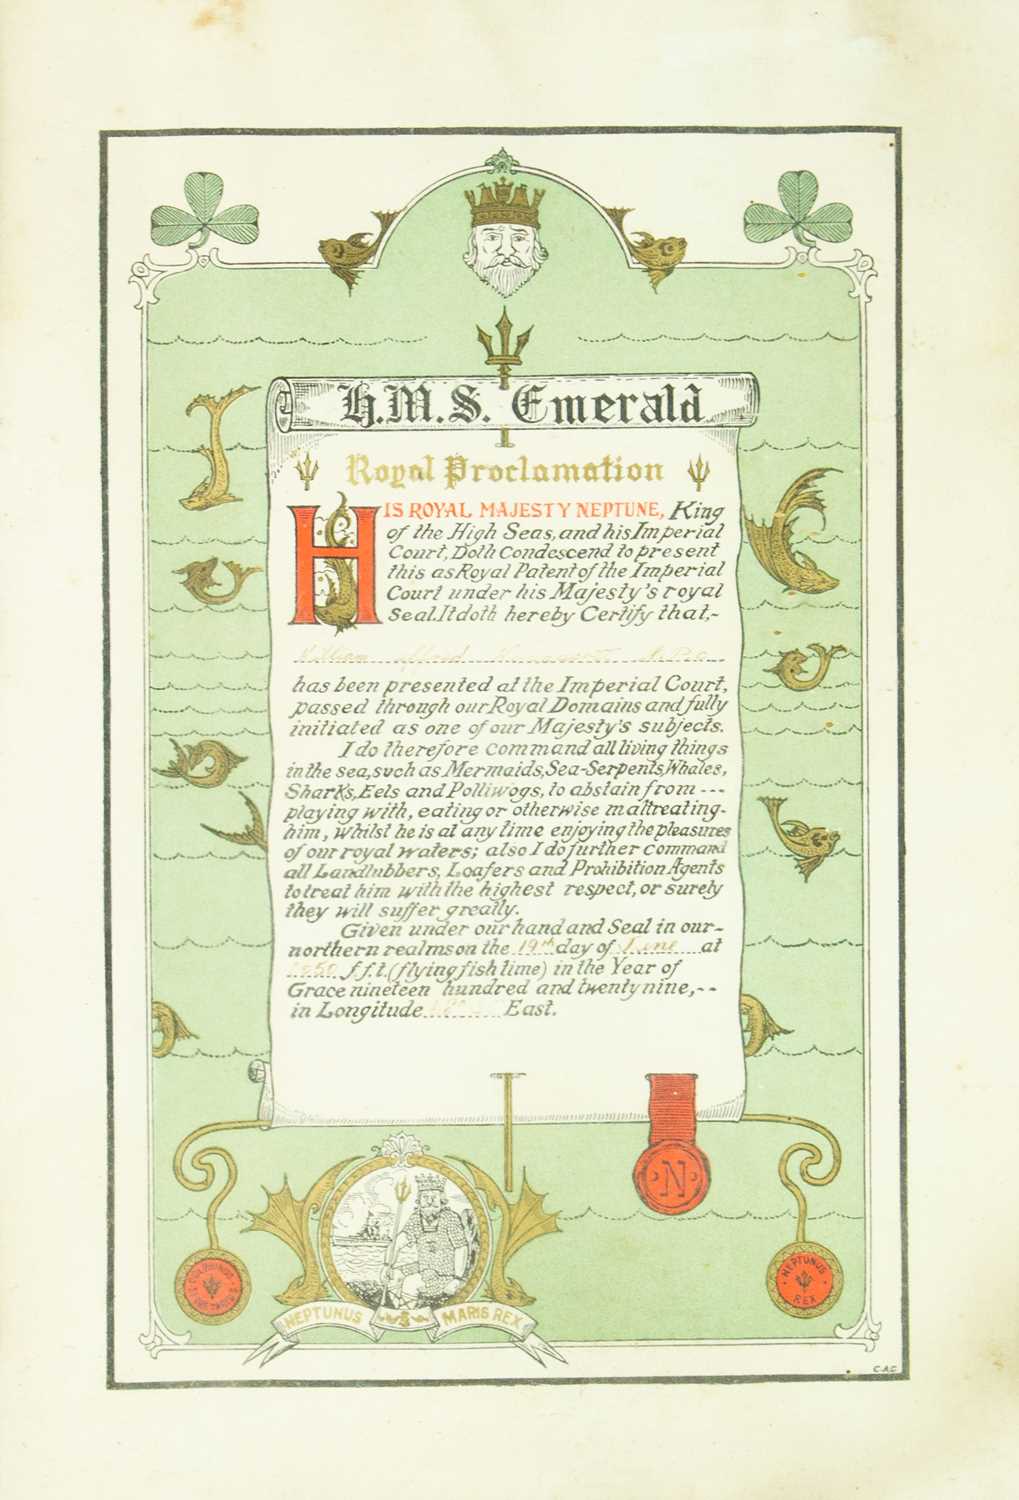 H.M.S. Emerald
Royal Proclamation
HIS ROYAL MAJESTY NEPTUNE, King
of the High Seas, and his Imperial
Court, Doth Condescend to present
this as Royal Patent of the Imperial
Court under his Majesty's royal
Seal. It doth hereby Certify that,-
William Alfred
has been presented at the Imperial Court,
passed through our Royal Domains and fully
initiated as one of our Majesty's subjects.
I do therefore command all living things
in the sea, such as Mermaids, Sea-Serpents, Whales,
Sharks, Eels and Polliwogs, to abstain from ---
playing with, eating or otherwise maltreating-
him, whilst he is at any time enjoying the pleasures
of our royal waters; also I do further command
all Landlubbers, Loafers and Prohibition Agents
to treat him with the highest respect, or surely
they will suffer greatly.
Given under our hand and Seal in our-
northern realms on the 19th day of June at
f.f.t. (flying fish time) in the Year of
Grace nineteen hundred and twenty nine,--
in Longitude East.
N
NEPTUNUS
REX
NEPTUNUS MARIS REX
C.A.C